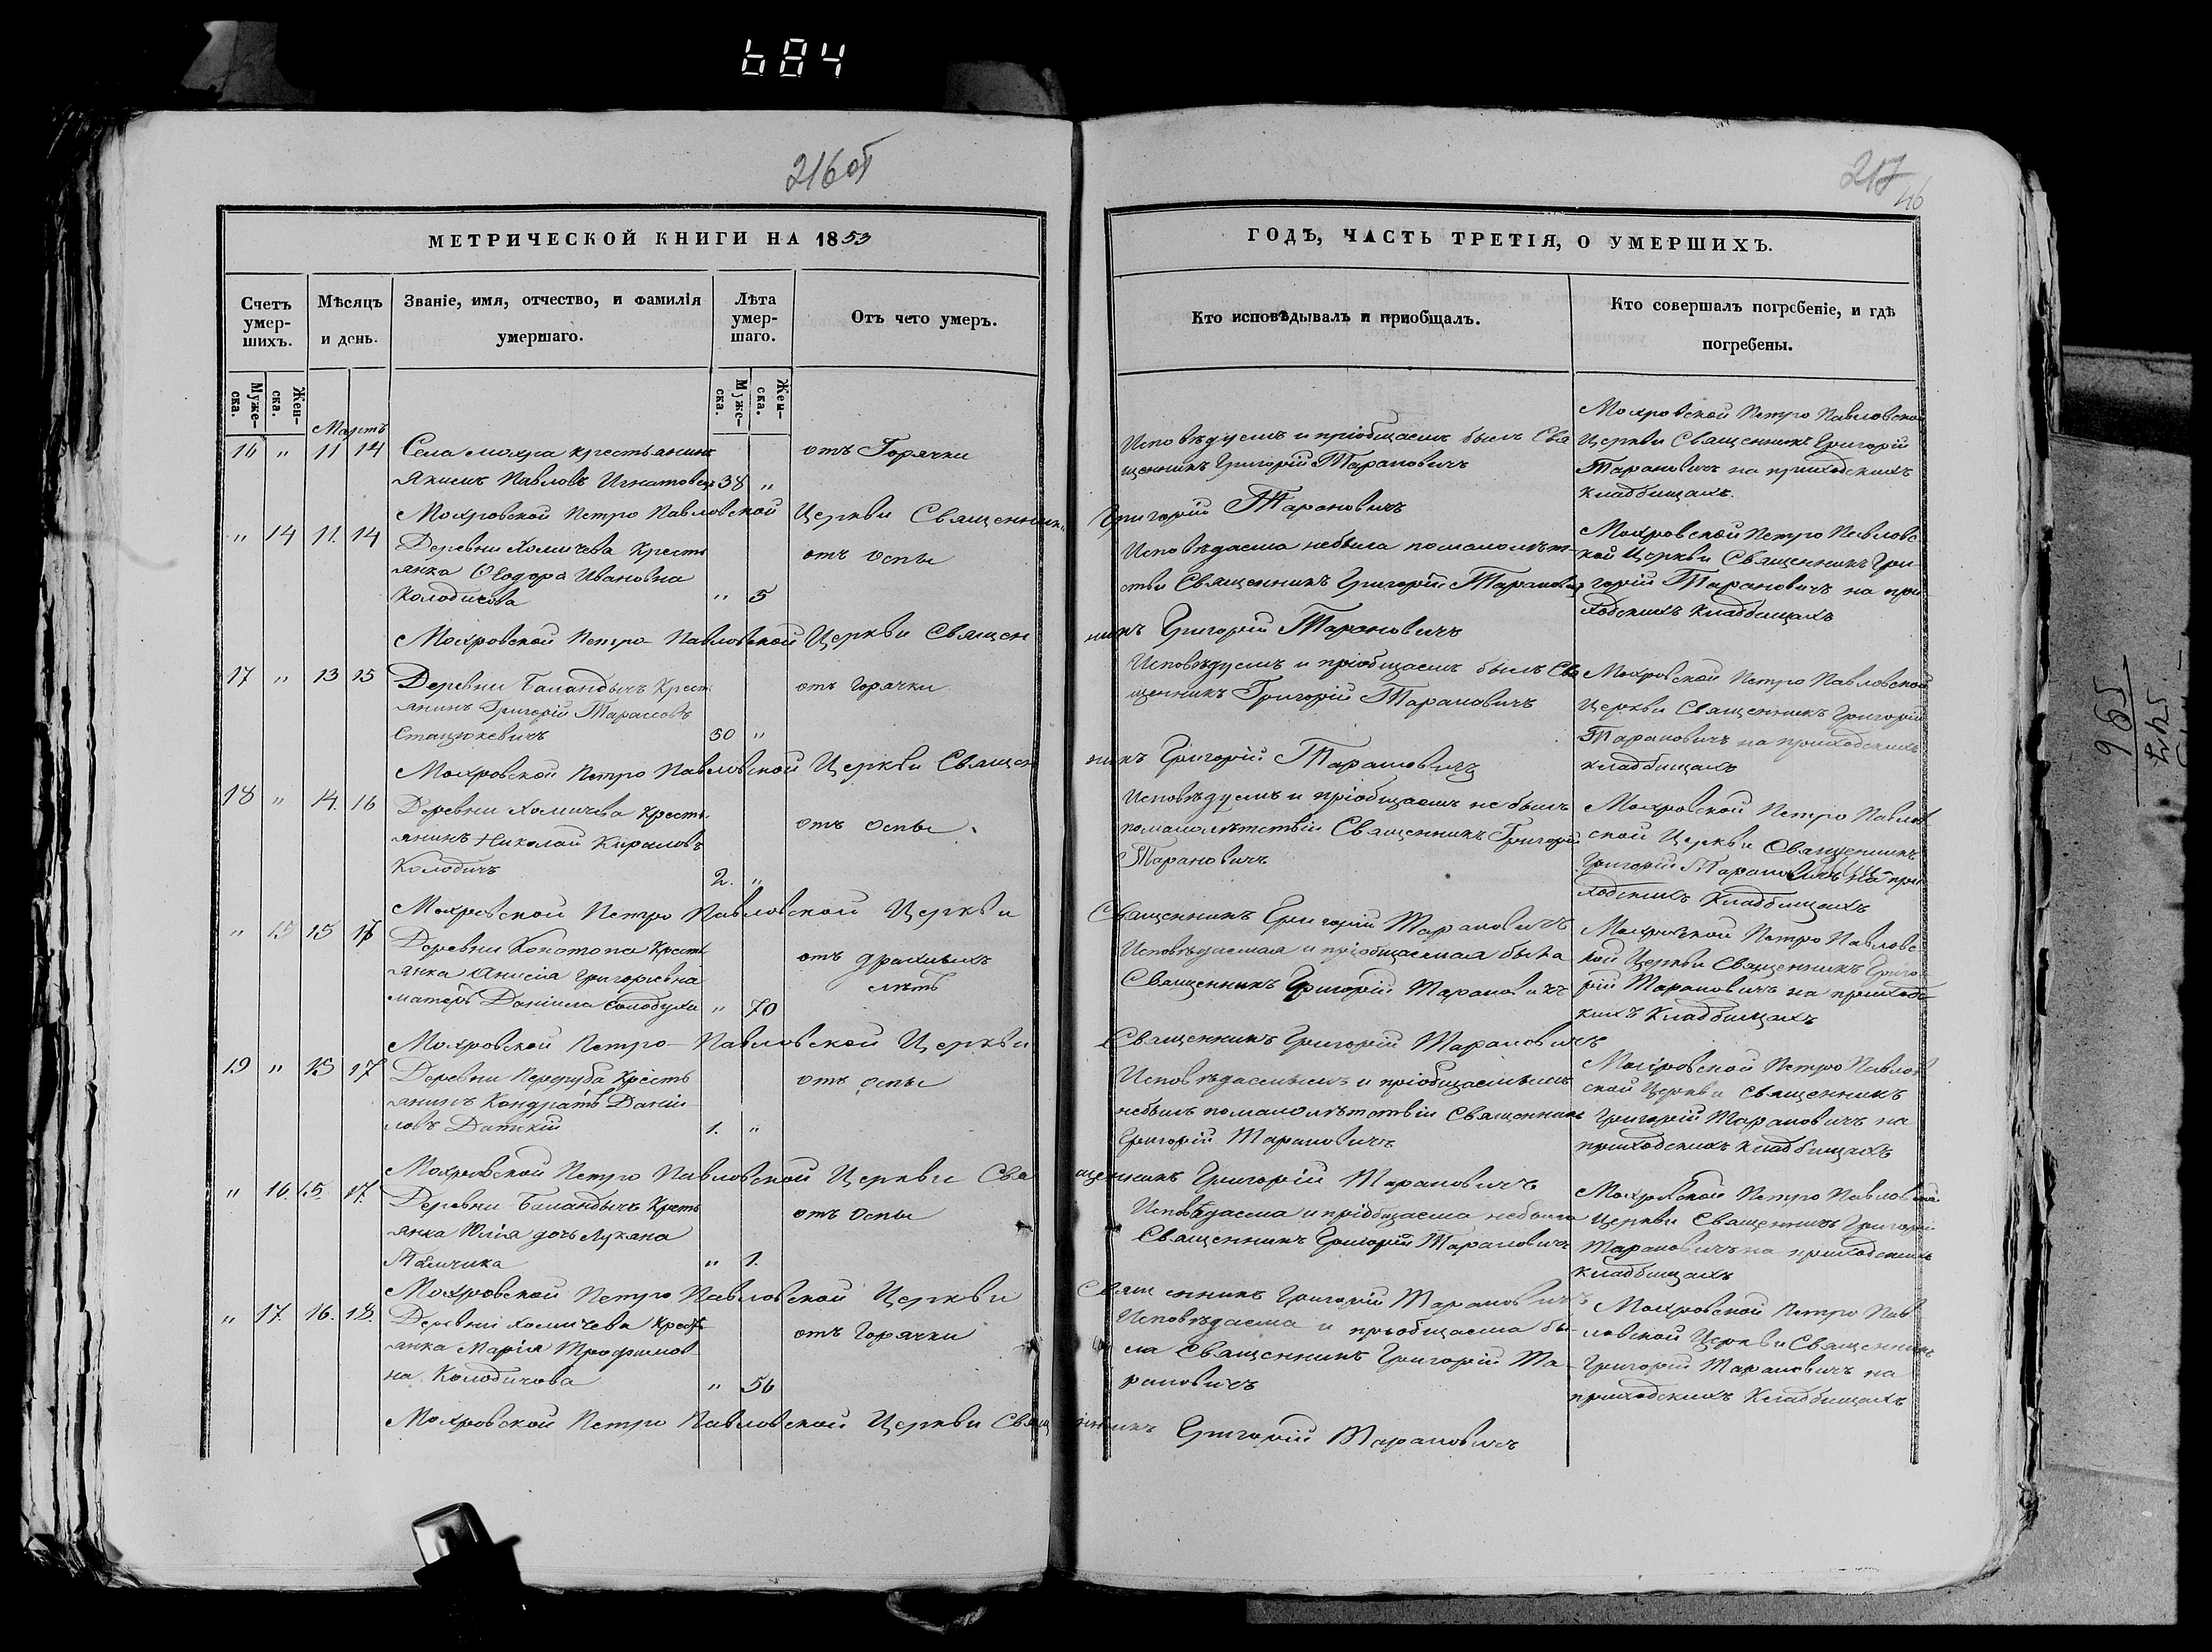 684
216об
217
46
МЕТРИЧЕСКОЙ КНИГИ НА 1853
ГОДЪ, ЧАСТЬ ТРЕТІЯ, О УМЕРШИХЪ.
Счетъ умер-шихъ.
Мѣсяцъ и день.
Званіе, имя, отчество, и фамилія умершаго.
Лѣта умер-шаго.
Отъ чего умеръ.
Кто исповѣдывалъ и приобщалъ.
Кто совершалъ погребеніе, и гдѣ погребены.
Муже-ска.
Жен-ска.
Муже-ска.
Жен-ска.
Мартъ
16 " 11 14 Села мохра крестьянинъ
Якимъ Павловъ Игнатовецъ 38 "
отъ Горячки
Исповѣдуемъ и пріобщаемъ былъ Свя
щенникъ Григорій Тарановичъ
Мохровской Петро Павловской
Церкви Священникъ Григорій
Тарановичъ на приходскихъ
кладбищахъ.
Мохровской Петро Павловской Церкви Священникъ Григорій Тарановичъ
" 14 11. 14 Деревни Хомичева Кресть
янка Ѳеодора Ивановна
Колодичова " 5
отъ оспы
Исповѣдаема небыла помалолѣт-
стви Священникъ Григорій Тарановичъ
Мохровской Петро Павловс
кой Церкви Священникъ Гри
горій Тарановичъ на при
ходскихъ кладбищахъ
Мохровской Петро-Павловской Церкви Священ никъ Григорій Тарановичъ
17 " 13 15 Деревни Баландычъ Крест
янинъ Григорій Тарасовъ
Стацюкевичъ 50 "
отъ горячки
Исповѣдуемъ и пріобщаемъ былъ Свя
щенникъ Григорій Тарановичъ
Мохровской Петро Павловской
Церкви Священникъ Григорій
Тарановичъ на приходскихъ
кладбищахъ
Мохровской Петро Павловской Церкви Священ никъ Григорій Тарановичъ
18 " 14. 16 Деревни Хомичева Кресть
янинъ Николай Кириловъ
Колодичъ 2. "
отъ оспы
Исповѣдуемъ и пріобщаемъ не былъ
помалолѣтствіи Священникъ Григорій
Тарановичъ
Мохровской Петро Павлов
ской Церкви Священникъ
Григорій Тарановичъ на при
ходскихъ Кладбищахъ
Мохровской Петро Павловской Церкви Священникъ Григорій Тарановичъ
" 15 15 17 Деревни Конотопа Кресть
янка Анисія Григорьевна
матерь Даніила Солодухи " 70
отъ драхлыхъ
лѣтъ
Исповѣдаемая и пріобщаемая была
Священникъ Григорій Тарановичъ
Мохровской Петро Павловс
кой Церкви Священникъ Григо
рій Тарановичъ на приходс
кихъ Кладбищахъ
Мохровской Петро-Павловской Церкви Священникъ Григорій Тарановичъ
19 " 15 17 Деревни Передуба Кресть
янинъ Кондратъ Даніи
ловъ 1. "
отъ оспы
Исповѣдаемымъ и пріобщаемымъ
небылъ помалолѣтствіи Священникъ
Григорій Тарановичъ
Мохровской Петро Павлов
ской Церкви Священникъ
Григорій Тарановичъ на
приходскихъ кладбищахъ
Мохровской Петро Павловской Церкви Свя щенникъ Григорій Тарановичъ
" 16 15. 17. Деревни Баландычъ Кресть
янка Юлія дочь Лукяна
" 1.
отъ Оспы
Исповѣдаема и пріобщаема небыла
Священникъ Григорій Тарановичъ
Мохровской Петро Павловской
Церкви Священникъ Григорій
Тарановичъ на приходскихъ
кладбищахъ
Мохровской Петро Павловской Церкви Священникъ Григорій Тарановичъ
" 17. 16. 18. Деревни Хомичева Кресть
янка Марія Трофимов
на Колодичова " 56
отъ Горячки
Исповѣдаема и пріобщаема бы-
ла Священникъ Григорій Та-
рановичъ
Мохровской Петро Пав
ловской Церкви Священникъ
Григорій Тарановичъ на
приходскихъ Кладбищахъ
Мохровской Петро Павловской Церкви Священникъ Григорій Тарановичъ
965